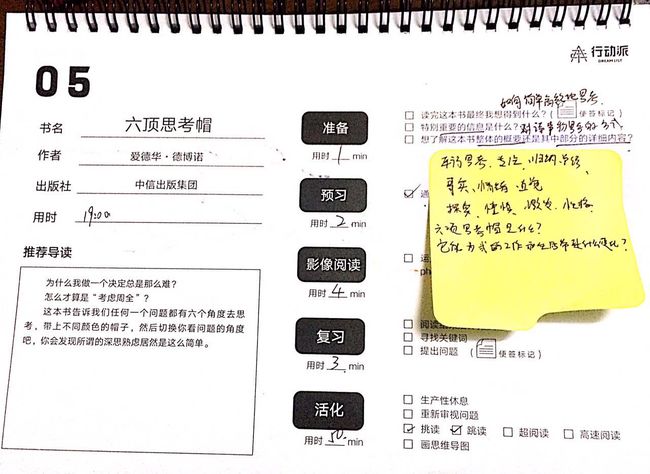 行动派
DREAM LIST
05
如何简单高效地思考.
书名 六顶思考帽
作者 爱德华·德博诺
出版社 中信出版集团
用时 19:00
推荐导读
为什么我做一个决定总是那么难？
怎么才算是“考虑周全”？
这本书告诉我们任何一个问题都有六个角度去思
考，带上不同颜色的帽子，然后切换你看问题的角度
吧，你会发现所谓的深思熟虑居然是这么简单。
准备
用时 1 min
预习
用时 2 min
影像阅读
用时 4 min
复习
用时 3 min
活化
用时 50 min
读完这本书最终我想得到什么？（ 便签标记）
特别重要的信息是什么？
想了解这本书整体的概要还是其中部分的详细内容？
平行思考、 归纳总结、
事实、情绪、直觉
探索、谨慎、
六项思考帽是什么？
通
运
ph
阅读
寻找关键词
提出问题 （ 便签标记）
生产性休息
重新审视问题
挑读 跳读 超阅读 高速阅读
画思维导图